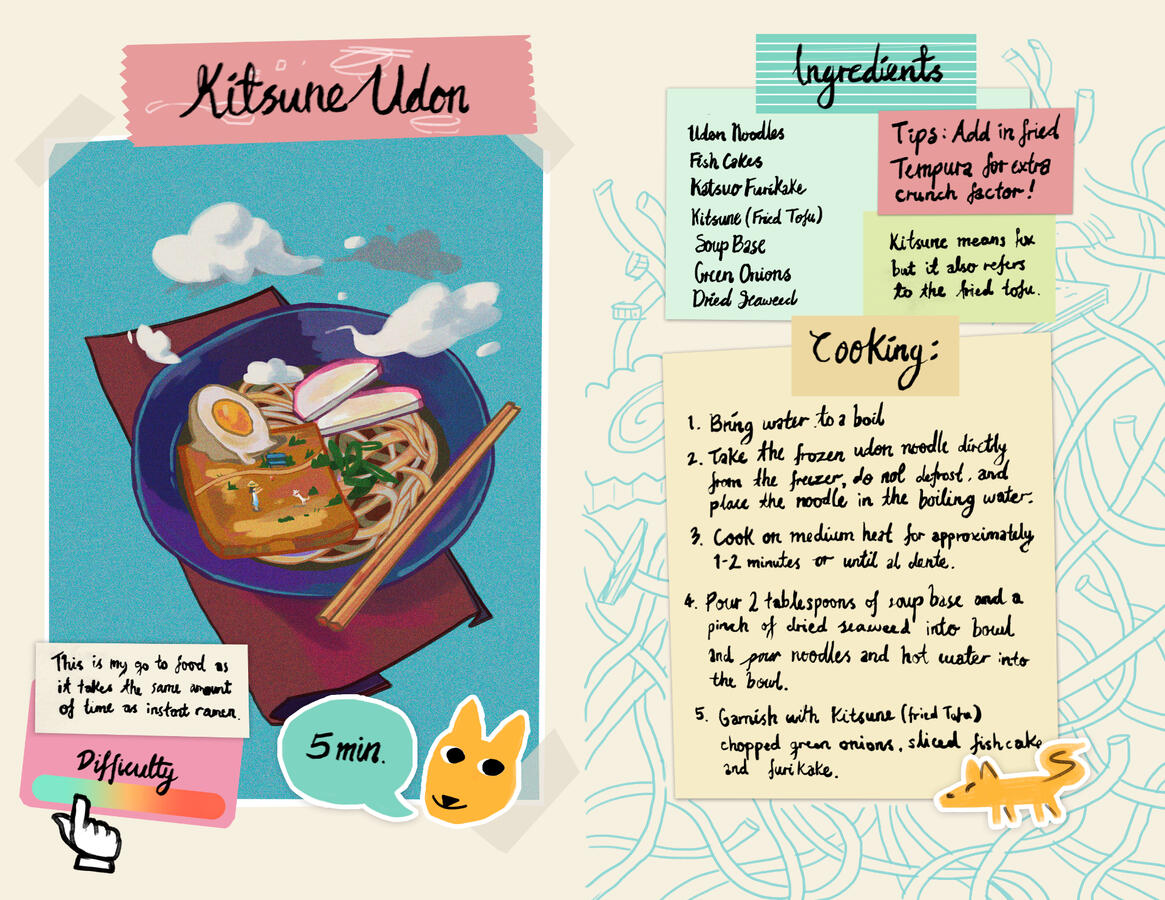 Kitsune Udon
This is my go to food as
it takes the same amount
of time as instant ramen.
Difficulty
5 min.
Ingredients
Udon Noodles
Fish Cakes
Katsuo Furikake
Kitsune (Fried Tofu)
Soup Base
Green Onions
Dried Seaweed
Tips: Add in fried
Tempura for extra
crunch factor!
Kitsune means fox
but it also refers
to the fried tofu.
Cooking:
1. Bring water to a boil
2. Take the frozen udon noodle directly
from the freezer, do not defrost, and
place the noodle in the boiling water.
3. Cook on medium heat for approximately
1-2 minutes or until al dente.
4. Pour 2 tablespoons of soup base and a
pinch of dried seaweed into bowl
and pour noodles and hot water into
the bowl.
5. Garnish with Kitsune (fried Tofu)
chopped green onions, sliced fishcake
and furikake.